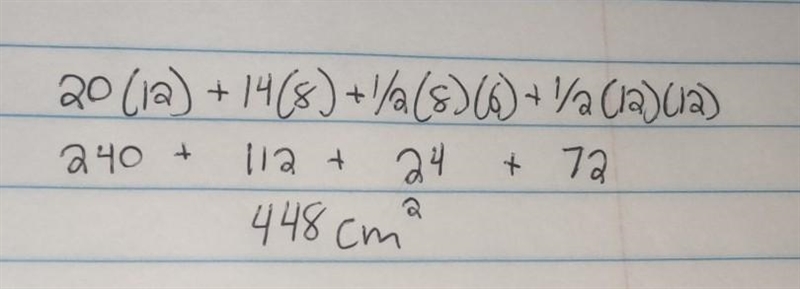 20(12) + 14(8) + 1/2(8)(6) + 1/2(12)(12)
240 + 112 + 24 + 72
448 cm²